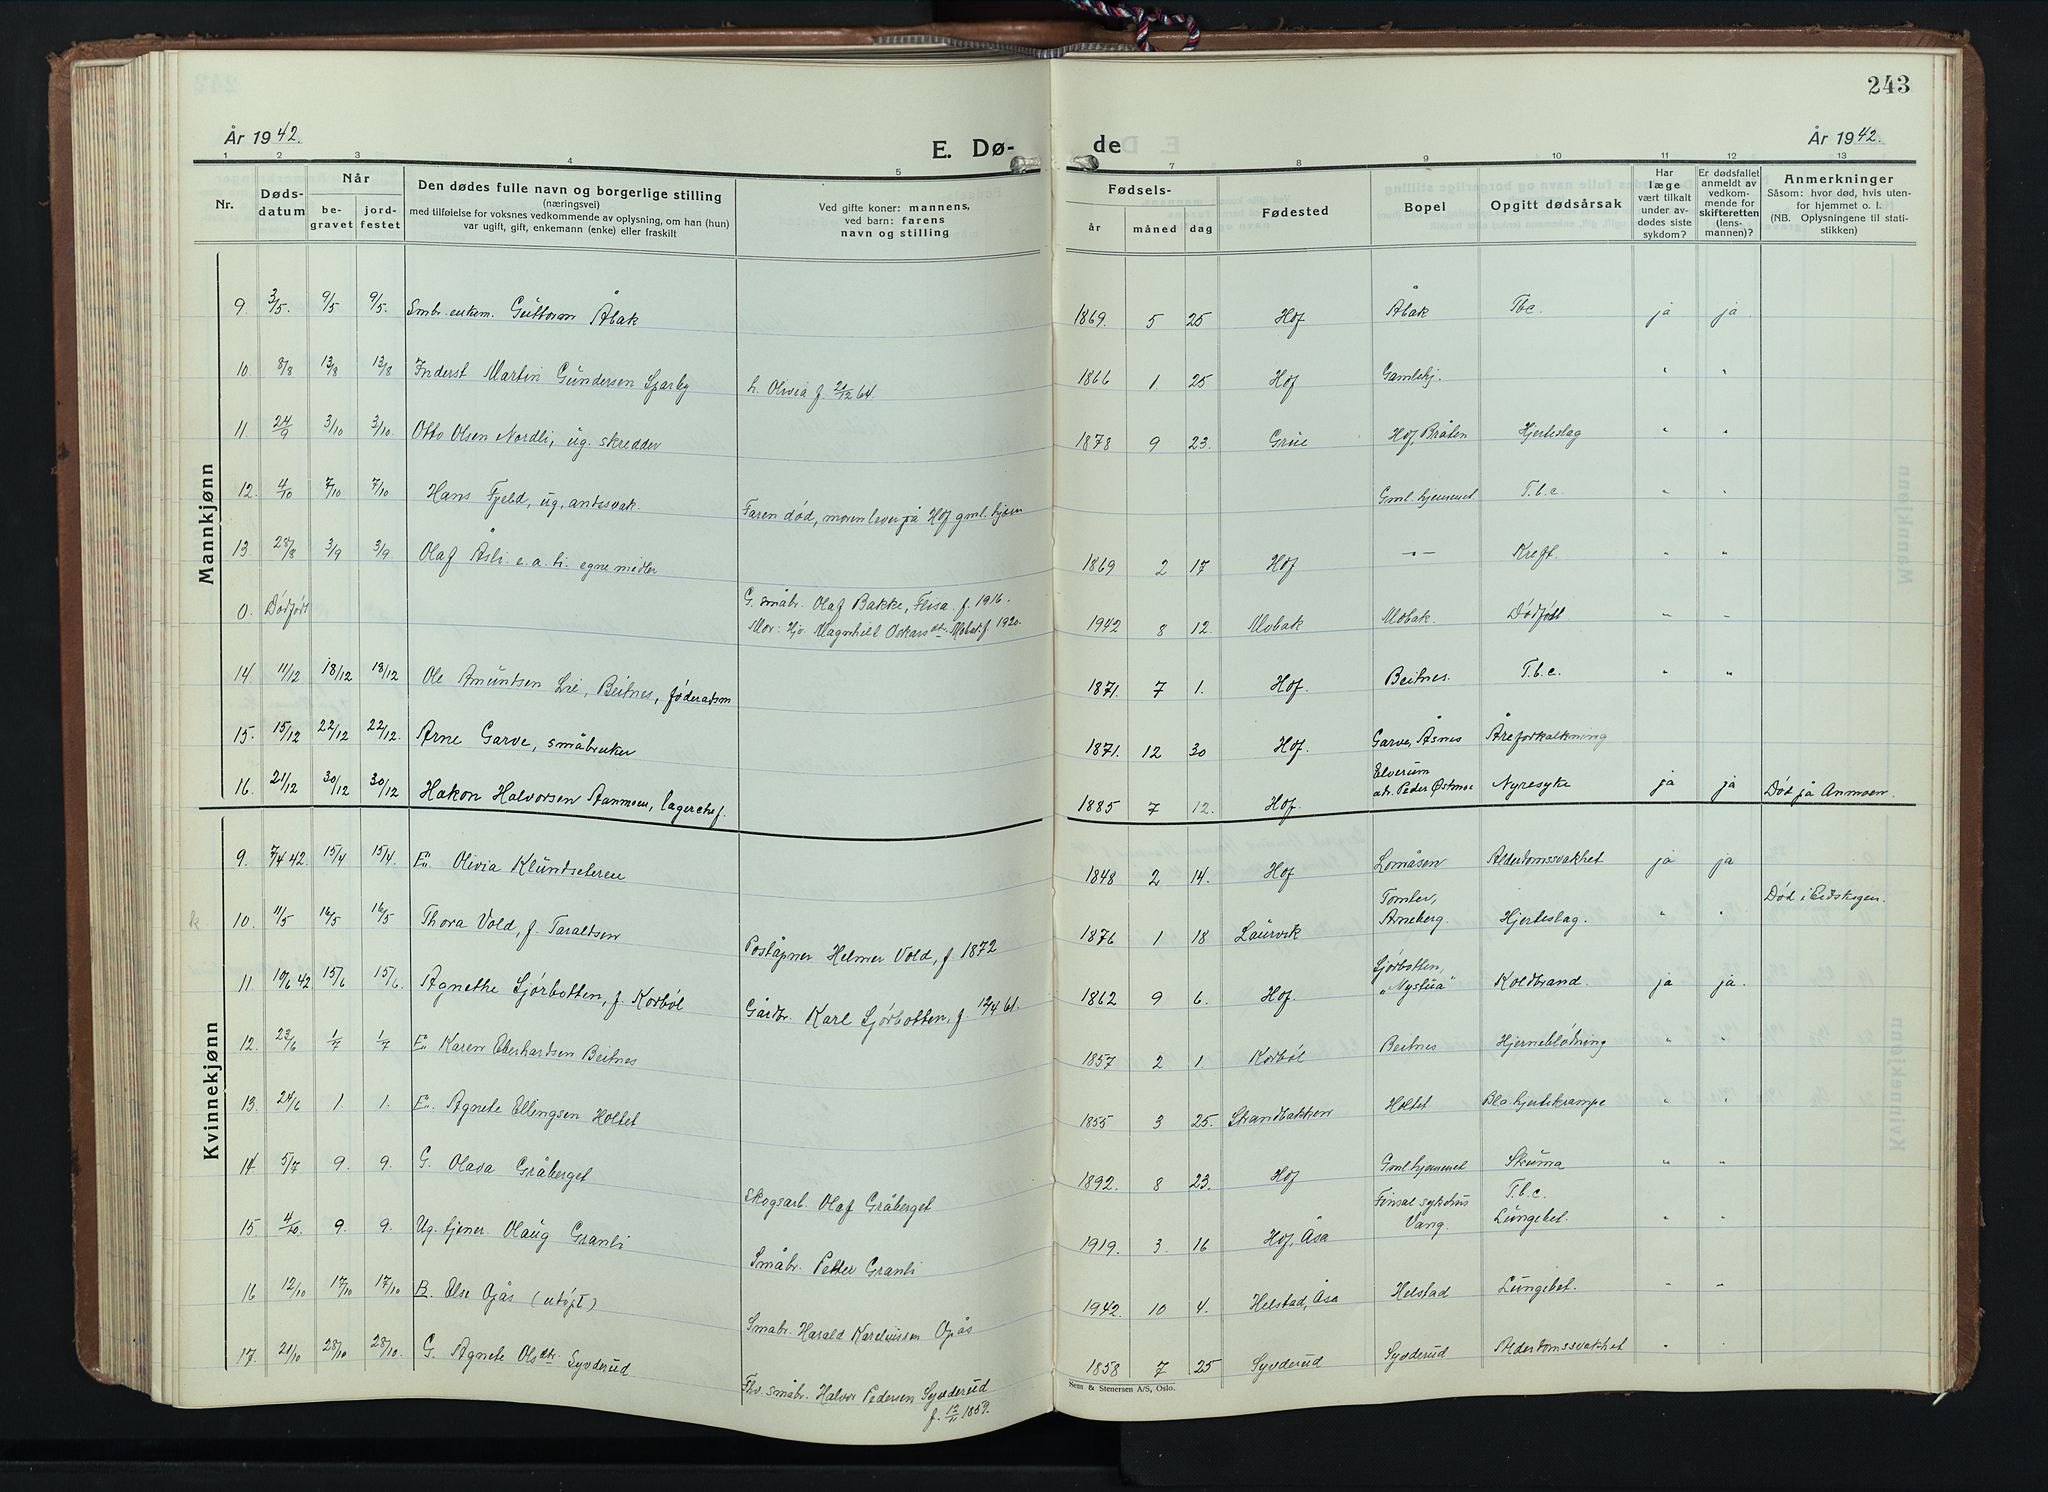 243
År 1942.
E. Dø-
de
År 1942.
1 2 3 4 5 7 8 9 10 11 12 13
Nr.
Døds-
datum
Når
be-
gravet
jord-
festet
Den dødes fulle navn og borgerlige stilling
(næringsvei)
med tilføielse for voksnes vedkommende av oplysning, om han (hun)
var ugift, gift, enkemann (enke) eller fraskilt
Ved gifte koner: mannens,
ved barn: farens
navn og stilling
Fødsels-
år måned dag
Fødested
Bopel
Opgitt dødsårsak
Har
læge
vært tilkalt
under av-
dødes siste
sykdom?
Er dødsfallet
anmeldt av
vedkom-
mende for
skifteretten
(lens-
mannen)?
Anmerkninger
Såsom: hvor død, hvis uten-
for hjemmet o. l.
(NB. Oplysningene til stati-
stikken)
Mannkjønn
9 3/5. 9/5 9/5. Smbr. enkem. Guttorm Åbak 1869. 5 25 Hof Åbak Tbc. ja ja.
10 8/8 13/8 13/8 Inderst Martin Gundersen Sparby h. Olivia f. 21/12 64. 1866 1 25 Hof Gamlehj. " "
11. 24/9 3/10 3/10. Otto Olsen Nordli, ug. skredder 1878 9 23. Grue Hof, Bråten Hjerteslag " "
12. 4/10 7/10 7/10 Hans Fjeld, ug, åndssvak. Faren død, moren lever på Hof gml. hjem Gml. hjemmet. T.b.c. " "
13. 28/8 3/9 3/9. Olaf Åsli. e. a. li. egne midler 1869 2 17 Hof -"- Kreft. " "
0. Dødfødt G. småbr. Olaf Bakke, Flisa. f. 1916.
Mor: Hj. Magnhild Oskarsdtr. Mobak f. 1920. 1942 8 12. Mobak Mobak. Dødfødt " "
14 11/12 18/12 18/12 Ole Amundsen Lie, Beitnes, føderådsm 1871. 7 1. Hof. Beitnes. T.b.c. " "
15. 15/12 22/12 22/12. Arne Garve, småbruker 1871. 12 30 Hof. Garve, Åsnes Åreforkalkning
16. 21/12 30/12 30/12 Håkon Halvorsen Aanmoen, lagerchef. 1885 7 12. Hof. Elverum
adr. Peder Østmoe Nyresyke ja ja Død på Anmoen.
Kvinnekjønn
9. 7/4 42. 15/4 15/4. E. Olivia Klundseteren 1848 2 14. Hof Lomåsen Alderdomssvakhet ja ja
10. 11/5 16/5 16/5 Thora Vold, f. Taraldsen Poståpner Helmer Vold, f. 1872 1876 1 18 Laurvik Tomter,
Arneberg. Hjerteslag. " " Død i Eidskogen.
11. 10/6 42 15/6 15/6. Agnethe Sjørbotten, f. Korbøl Gårdbr. Karl Sjørbotten, f. 12/4 61. 1862 9 6. Hof. Sjørbotten,
"Nystua" Koldbrand. ja ja.
12. 23/6 1/7 1/7 E. Karen Eberhardsen Beitnes 1857 2 1. Korbøl Beitnes Hjerneblødning " "
13. 24/6 1. 1. E. Agnete Ellingsen Holtet 1855 3 25. Strandbakken Holtet Bla. hjertekrampe " "
14 5/7 9. 9. G. Olava Gråberget Skogsarb. Olaf Gråberget 1892. 8 23. Hof Gml. hjemmet Struma " "
15. 4/10. 9. 9. Ug. tjener. Olaug Granli Småbr. Petter Granli 1919. 3. 16 Hof, Åsa Finsal sykehus
Vang. T.b.c.
Lungebet. " "
16 12/10 17/10 17/10 B. Else Opås (udøpt) Småbr. Harald Kareliussen Opås 1942. 10 4. Helstad, Åsa Helstad Lungebet. " "
17. 21/10 28/10 28/10. G. Agnete Olsdtr. Syvderud Fhv. småbr. Halvor Pedersen Syvderud
f. 12/11 1859. 1858 7 25 Syvderud Syvderud Alderdomssvakhet " "
Sem & Stenersen A/S, Oslo.